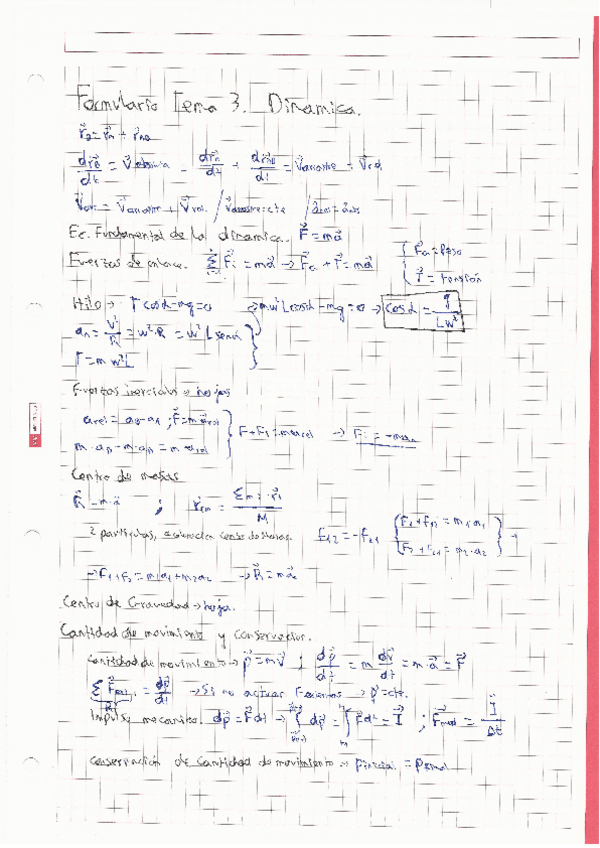 Formulario Tema 3. Dinamica.
r⃗B = r⃗A + r⃗AB
dr⃗B/dt = V⃗absoluta = dr⃗A/dt + dr⃗AB/dt = V⃗arrastre + V⃗rel
V⃗abs = V⃗arrastre + V⃗rel / V⃗arrastre = cte /
Ec. Fundamental de la dinamica. F⃗ = ma⃗
Fuerzas de enlace. Σ F⃗i = ma⃗ → F⃗a + T⃗ = ma⃗ { F⃗a = Peso
T⃗ = tensión
Hilo → T cosα - mg = 0 → mw²L cosα - mg = 0 → cosα = g/Lw²
an = V²/R = w²·R = w² L senα
T = m w² L
Fuerzas inerciales → hojas
F + Fi = m·arel →
Centro de masas
R⃗ = m·a⃗ ; r⃗cm = Σmi·r⃗i / M
2 particulas, F12 = -F21 { F1 + F12 = m1·a1
F2 + F21 = m2·a2 } →
→ F1 + F2 = m1a1 + m2a2 → R⃗ = ma⃗
Centro de Gravedad → hoja.
Cantidad de movimiento y conservacion.
Cantidad de movimiento → p⃗ = mV⃗ ; dp⃗/dt = m dv⃗/dt = m·a⃗ = F⃗
Σ F⃗ext = dp⃗/dt → Si no actuan F externas → p⃗ = cte.
Impulso mecanico. dp⃗ = F⃗dt → ∫dp⃗ = ∫F⃗dt = I⃗ ; F⃗med = I⃗/Δt
conservación de cantidad de movimiento → Pinicial = Pfinal